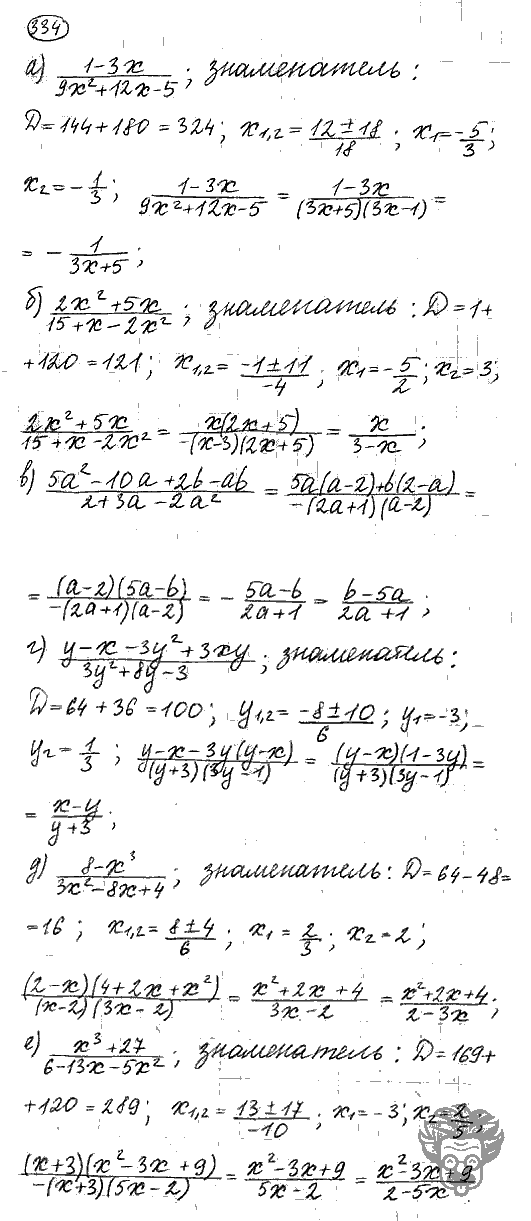 334
а) (1-3x)/(9x²+12x-5); знаменатель:
D=144+180=324; x₁,₂=(12±18)/18; x₁=-5/3;
x₂=-1/3; (1-3x)/(9x²+12x-5) = (1-3x)/((3x+5)(3x-1)) =
= -1/(3x+5);
б) (2x²+5x)/(15+x-2x²); знаменатель: D=1+
+120=121; x₁,₂=(-1±11)/-4; x₁=-5/2; x₂=3;
(2x²+5x)/(15+x-2x²) = (x(2x+5))/(-(x-3)(2x+5)) = x/(3-x);
в) (5a²-10a+2b-ab)/(2+3a-2a²) = (5a(a-2)+b(2-a))/(-(2a+1)(a-2)) =
= ((a-2)(5a-b))/(-(2a+1)(a-2)) = -(5a-b)/(2a+1) = (b-5a)/(2a+1);
г) (y-x-3y²+3xy)/(3y²+8y-3); знаменатель:
D=64+36=100; y₁,₂=(-8±10)/6; y₁=-3;
y₂=1/3; (y-x-3y(y-x))/((y+3)(3y-1)) = ((y-x)(1-3y))/((y+3)(3y-1)) =
= (x-y)/(y+3);
д) (8-x³)/(3x²-8x+4); знаменатель: D=64-48=
=16; x₁,₂=(8±4)/6; x₁=2/3; x₂=2;
((2-x)(4+2x+x²))/((x-2)(3x-2)) = (x²+2x+4)/(3x-2) = (x²+2x+4)/(2-3x);
е) (x³+27)/(6-13x-5x²); знаменатель: D=169+
+120=289; x₁,₂=(13±17)/-10; x₁=-3; x₂=2/5;
((x+3)(x²-3x+9))/(-(x+3)(5x-2)) = (x²-3x+9)/(5x-2) = (x²-3x+9)/(2-5x)